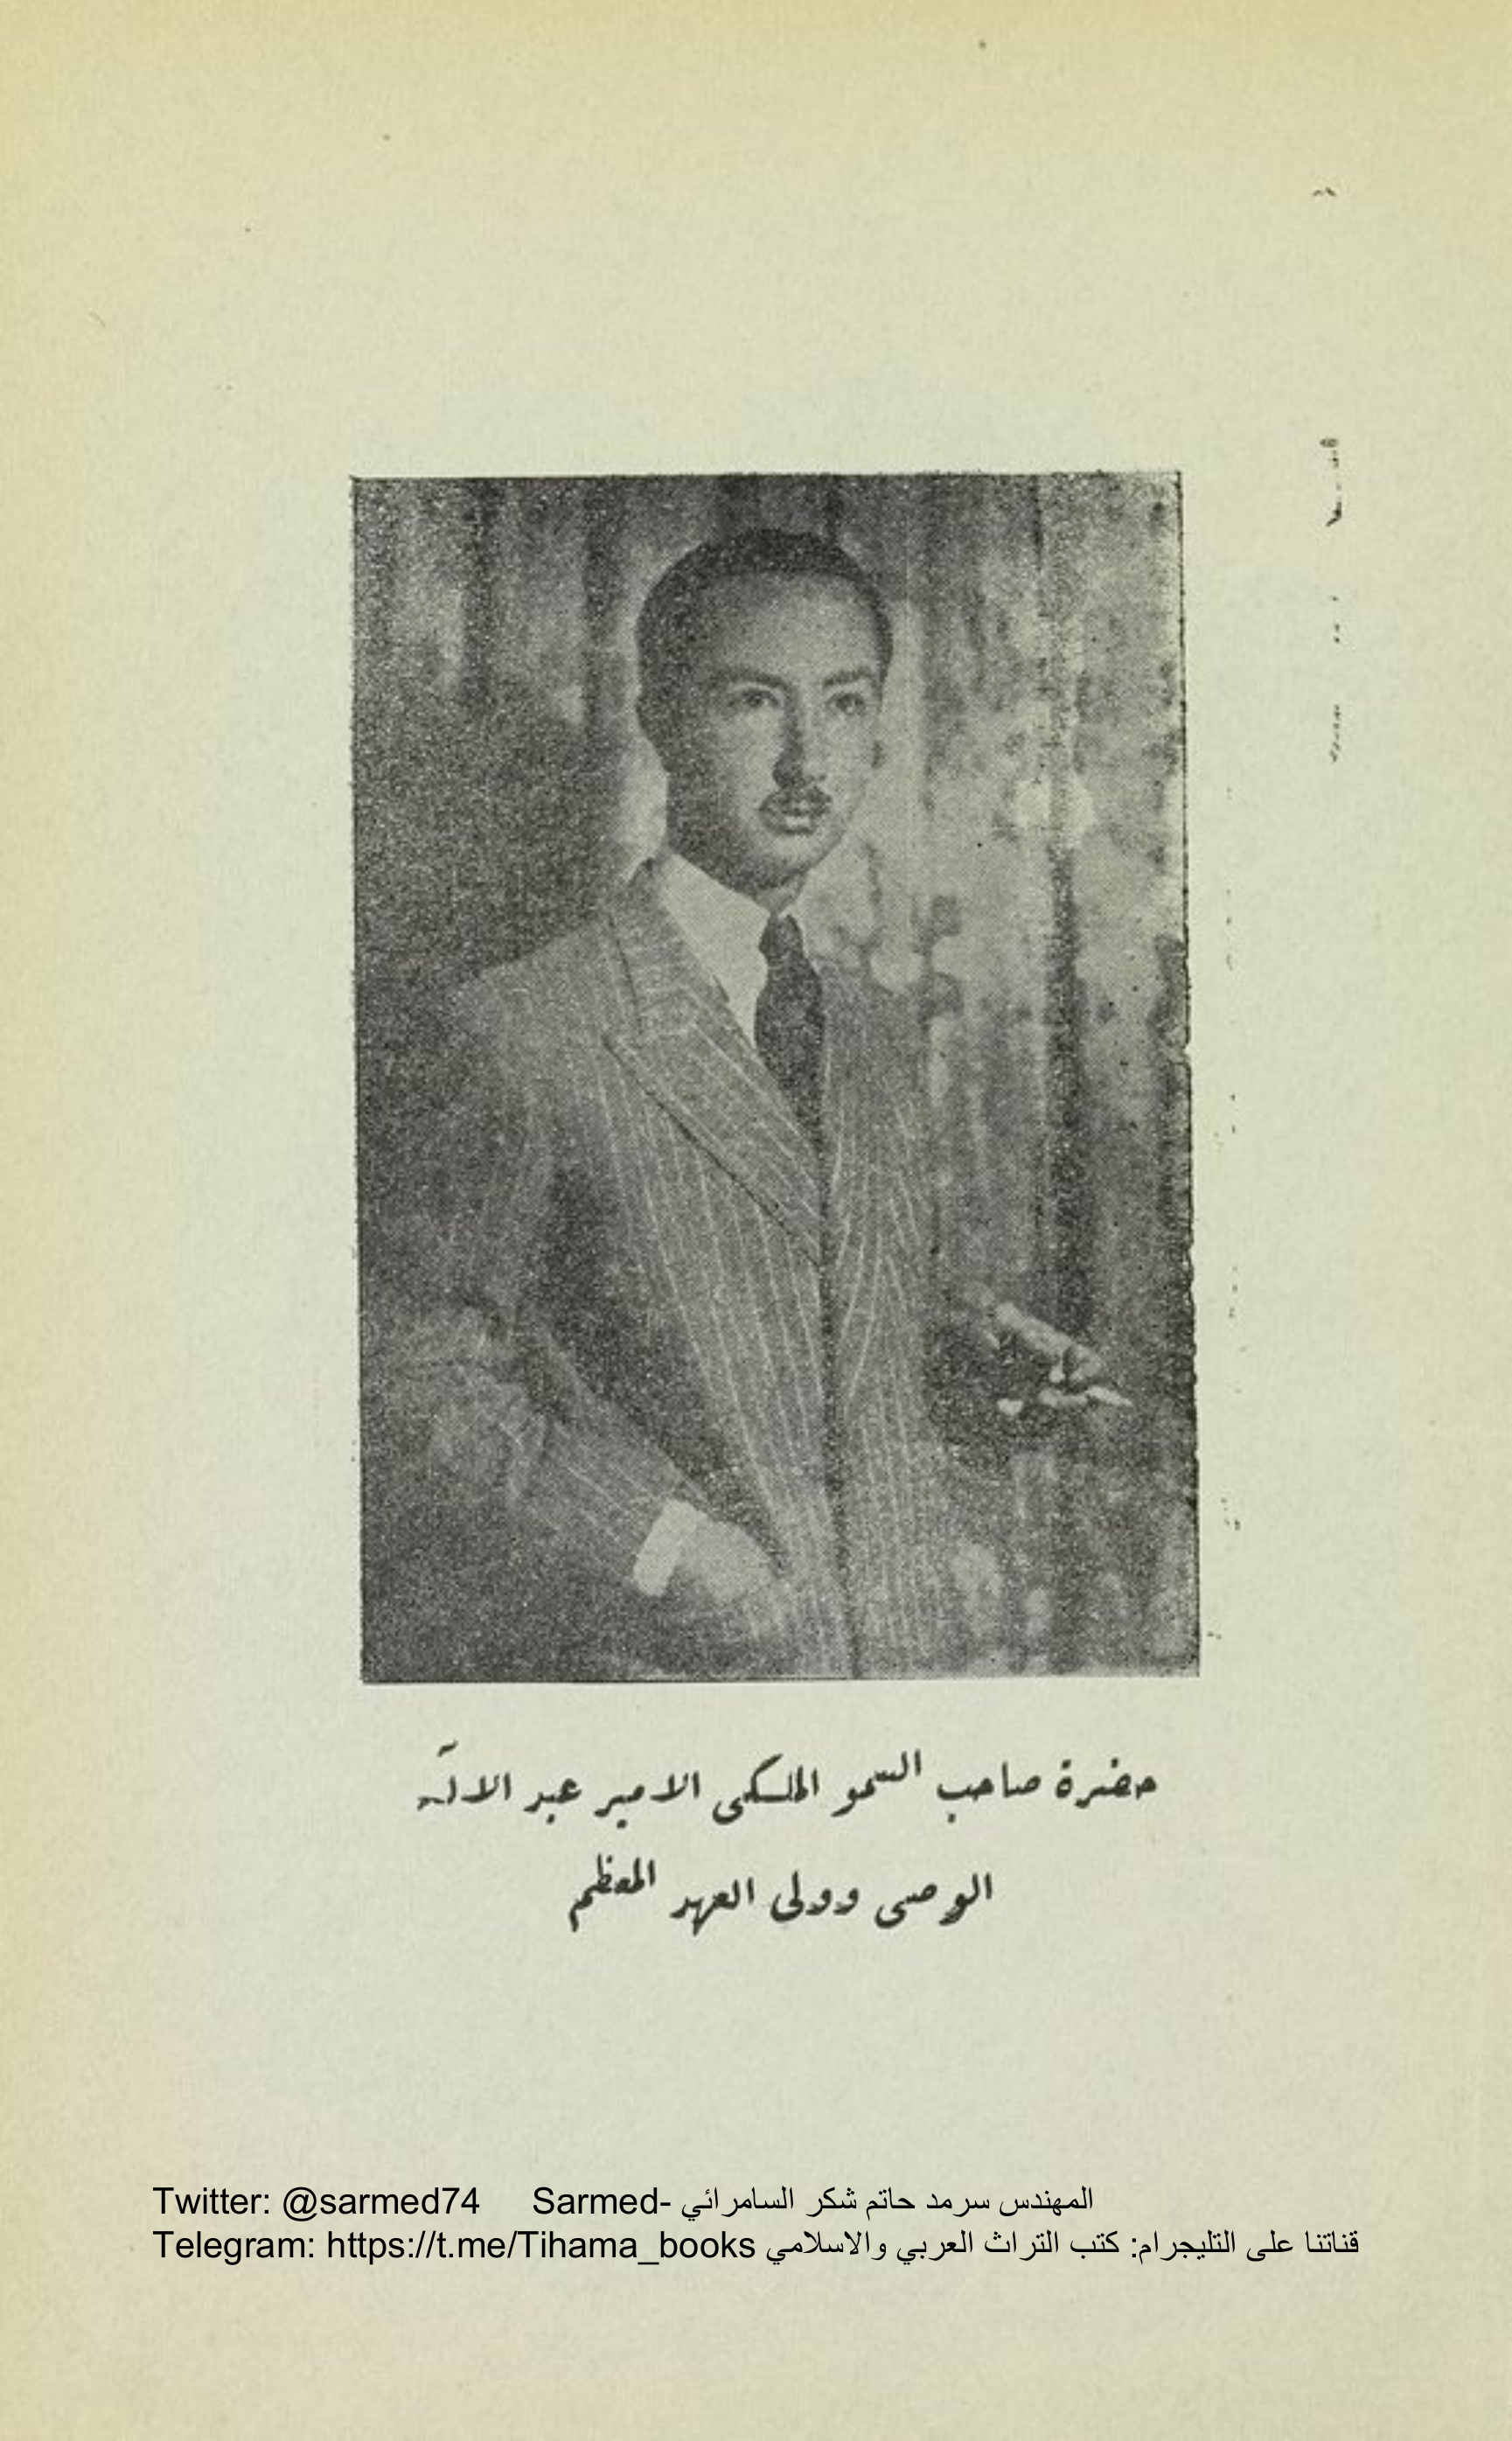 حضرة صاحب السمو الملكى الامير عبد الاله
الوصى وولى العهد المعظم
Twitter: @sarmed74 Sarmed- المهندس سرمد حاتم شكر السامرائي
Telegram: https://t.me/Tihama_books قناتنا على التليجرام: كتب التراث العربي والاسلامي